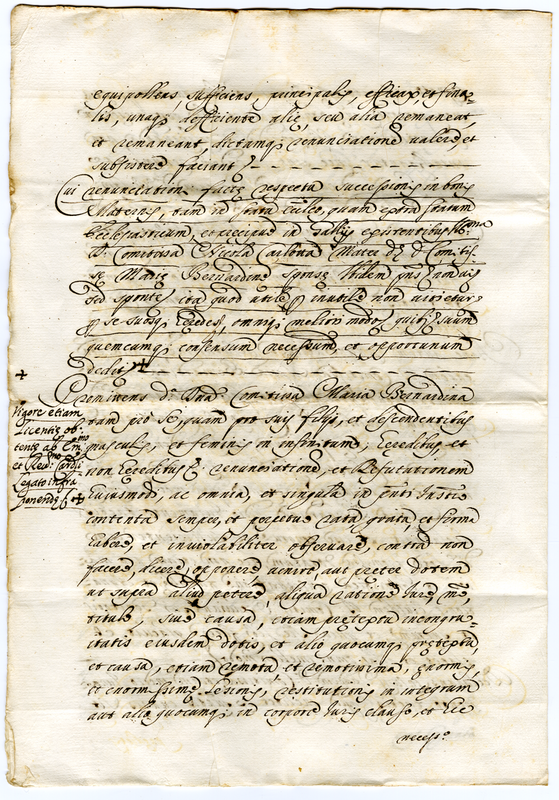 equipollens, sufficiens, principalis, efficax, et fina=
lis, unaq; deficiente alię, seu alia remaneat
et remaneant, dictamq; renunciationẽ valerẽ, et
subsisterẽ faciant
Cui renunciationi factę respectu successionis in bonis
Maternis, tam in statu
Ecclesiasticum, et pręcipue in
D. Comitissa Nicola Mater dę D. Comitis=
sę Marię Bernardinę Sponsę
sed spontẽ, ita quod utilẽ p inutilẽ non vitietur
p se suosq; hęredes, omniq; meliori modo, suum
quemcumq; consensum necessum, et opportunum
dedit ✠
Promittens dᵃ Dna Comitissa Maria Bernardina
tam pro se, quam pro suis filijs, et descendentibus
masculis, et feminis in infinitum, hęredibus, et
non hęredibus renunciationẽ, et Refutationem
huiusmodi, ac omnia, et singula in pnti Instro
contenta semper, et perpetuo rata, grata, et firma
haberẽ, et inviolabiliter observarẽ, contra non
facerẽ, dicerẽ, opponerẽ, venirẽ, aut pręter dotem
ut supra aliud peterẽ, aliqua rationẽ, Iurẽ, mẽ
titulo, siue causa, etiam prętextu incongru=
itatis eiusdem dotis, et alio quocumq; prętextu,
et causa, etiam remota, et remotissima, enormis,
et enormissimę lesionis, restitutionis in integrum
aut alio quocumq; in corporẽ Iuris clauso, et hic
necess.º
✠
Vigore etiam
Licentię ob=
tentę ab Emᵐᵒ
et Revᵐᵒ Cardli
Legato infra
ponendę ✠